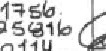 1756
25816
0114